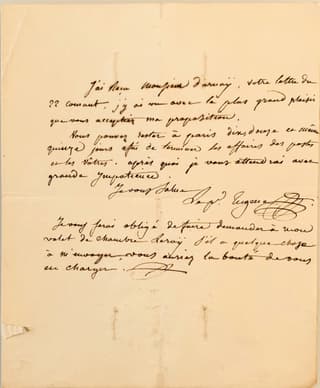 J'ai Reçu Monsieur Darnaÿ, votre lettre du
22 courant, j'y ai vu avec le plus grand plaisir
que vous acceptiez ma proposition.
Vous pouvez rester à paris dix, douze et même
quinze jours afin de terminer les affaires des postes
et les vôtres. après quoi je vous attendrai avec
grande Impatience.
Je vous Salue
Eugène
Je vous serai obligé de faire demander à mon
valet de chambre Leroÿ s'il a quelque chose
à m'envoyer, vous auriez la bonté de vous
en charger.